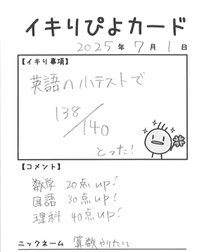 イキりぴよカード
2025年7月1日
【イキり事項】
英語の小テストで
138/140
とった!
【コメント】
数学 20点up!
国語 30点up!
理科 40点up!
ニックネーム 算数やりたい